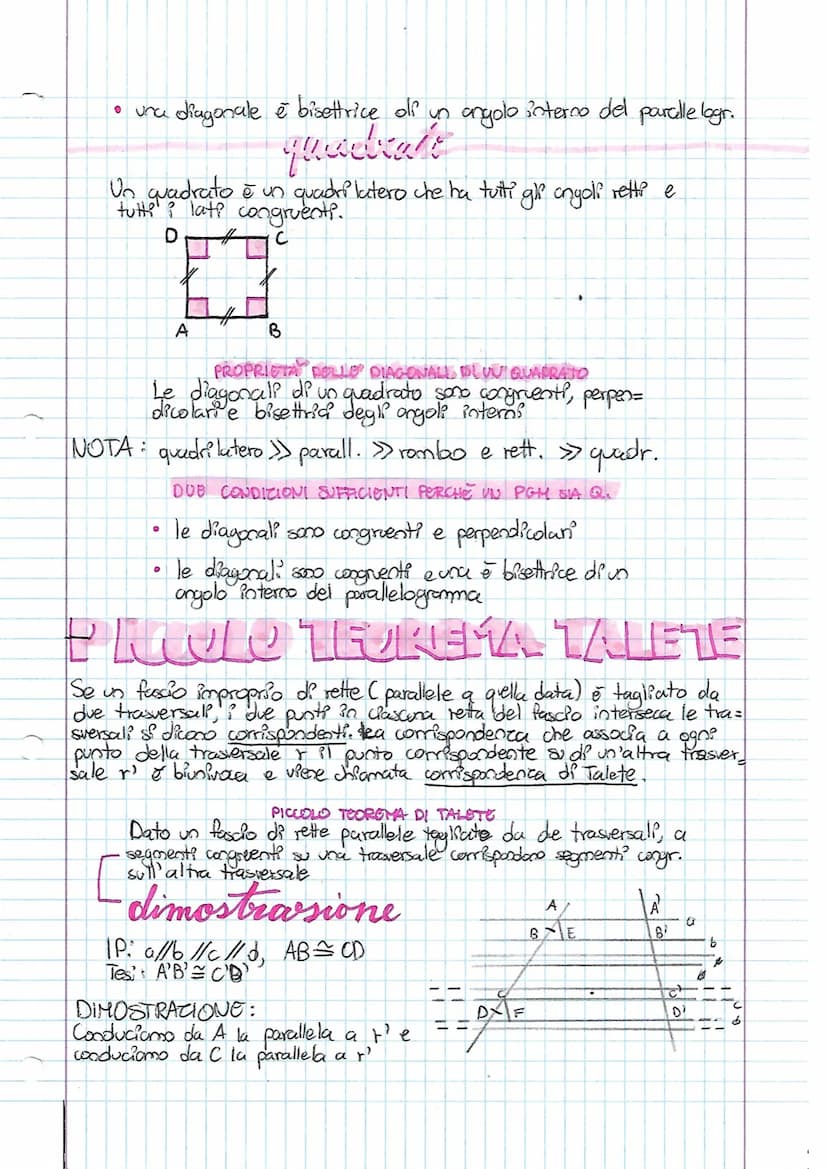 • una diagonale è bisettrice di un angolo interno del parallelogr.
quadrati
Un quadrato è un quadrilatero che ha tutti gli angoli retti e
tutti i lati congruenti.
D C
A B
PROPRIETÀ DELLE DIAGONALI DI UN QUADRATO
Le diagonali di un quadrato sono congruenti, perpen=
dicolari e bisettrici degli angoli interni
NOTA: quadrilatero >> parall. >> rombo e rett. >> quadr.
DUE CONDIZIONI SUFFICIENTI PERCHÈ UN PGM SIA Q.
• le diagonali sono congruenti e perpendicolari
• le diagonali sono congruenti e una è bisettrice di un
angolo interno del parallelogramma
PICCOLO TEOREMA TALETE
Se un fascio improprio di rette (parallele a quella data) è tagliato da
due trasversali, i due punti in ciascuna retta del fascio interseca le tra=
sversali si dicono corrispondenti. La corrispondenza che associa a ogni
punto della trasversale r il punto corrispondente su di un'altra trasver_
sale r' è biunivoca e viene chiamata corrispondenza di Talete.
PICCOLO TEOREMA DI TALETE
Dato un fascio di rette parallele tagliate da de trasversali, a
segmenti congruenti su una trasversale corrispondono segmenti congr.
sull'altra trasversale
dimostrazione
A A' a
B E B' b
IP: a//b//c//d, AB≅CD
Tesi: A'B'≅C'D'
C C' c
D F D' d
DIMOSTRAZIONE:
Conduciamo da A la parallela a r' e
conduciamo da C la parallela a r'